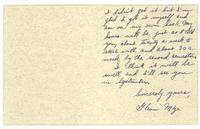 I didn't get it but I'm
glad I got it myself and
am on my own back. My
hours will be just as I told
you, about twenty a week to
start with and about 30 a
week by the second semester.
I think it will be
swell and I'll see you
in September.
Sincerely yours,